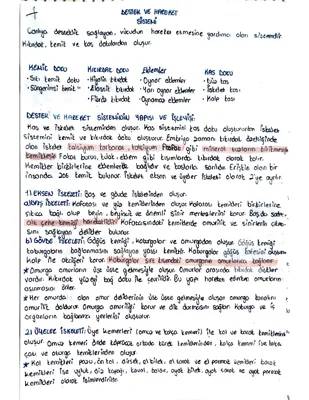 DESTEK VE HAREKET
SİSTEMİ
Canlıya desteklik sağlayan, vücudun hareket etmesine yardımcı olan sistemdir.
Kıkırdak, kemik ve kas dokularından oluşur.
KEMİK DOKU KIKIRDAK DOKU Eklemler KAS DOKU
• Sıkı kemik doku • Hiyalin kıkırdak • Oynar eklemler • Düz kas
• Süngerimsi kemik • Elastik kıkırdak • Yarı oynar eklemler • İskelet kası
• Fibröz kıkırdak • Oynamaz eklemler • Kalp kası
DESTEK VE HAREKET SİSTEMİNİN YAPISI VE İŞLEVİ:
Kas ve iskelet sisteminden oluşur. Kas sistemini kas doku oluştururken iskelet
sistemini kemik ve kıkırdak doku oluşturur. Embriyo zamanı kıkırdak özelliğinde
olan iskelet kalsiyum karbonat, kalsiyum fosfat gibi mineral tuzların birikmesiyle
kemikleşir. Fakat burun, kulak, eklem gibi kısımlarda kıkırdak olarak kalır.
Kemikler birbirlerine eklemlerle bağlıdır ve kaslarla sarılıdır. Erişkin olan bir
insanda 206 kemik bulunur. İskelet eksen ve üyeler iskeleti olarak 2'ye ayrılır.
1) EKSEN İSKELETİ: Baş ve gövde iskeletinden oluşur.
a) BAŞ İSKELETİ: Kafatası ve yüz kemiklerinden oluşur. Kafatası kemikleri birbirlerine
sıkıca bağlı olup beyin, beyincik ve önemli sinir merkezlerini korur. Başda sadece
alt çene kemiği hareketlidir. Kafatasındaki kemiklerde omurilik ve sinirlerin çıkma-
sını sağlayan delikler bulunur.
b) GÖVDE İSKELETİ: Göğüs kemiği, kaburgalar ve omurgadan oluşur. Göğüs kemiği
kaburgaların bağlanmasını sağlayan yassı kemiktir. Kaburgalar göğüs kafesini
Kalp ile akciğeri korur. Kaburgalar sırt kısmındaki omurgaya omurlarına bağlanır
* Omurga omurların üst üste gelmesiyle oluşur. Omurlar arasında kıkırdak diskler
vardır. Kıkırdak yüzeyi bağ doku ile çevrilidir. Bu yapı hareket ederken omurların
aşınmasını önler.
* Her omurda olan omur deliklerinin üst üste gelmesiyle oluşan omurga kanalının
omurilik doldurur. Omurga omuriliği korur ve dik durmasını sağlar. Kaburga ve iç
organların bağlanma yerlerini oluşturur.
2) ÜYELER İSKELETİ: Üye kemerleri (omuz ve kalça kemeri) ile kol ve bacak kemiklerinden
oluşur. Omuz kemeri önde köprücük arkada kürek kemiklerinden, kalça kemeri ise kalça
çatı ve oturga kemiklerinden oluşur
* Kol kemikleri pazu, ön kol, dirsek, el bilek, el tarak ve el parmak kemikleri bacak
kemikleri ise uyluk, diz kapağı, kaval, baldır, ayak bilek, ayak tarak ve ayak parmak
kemikleri olarak isimlendirilir.